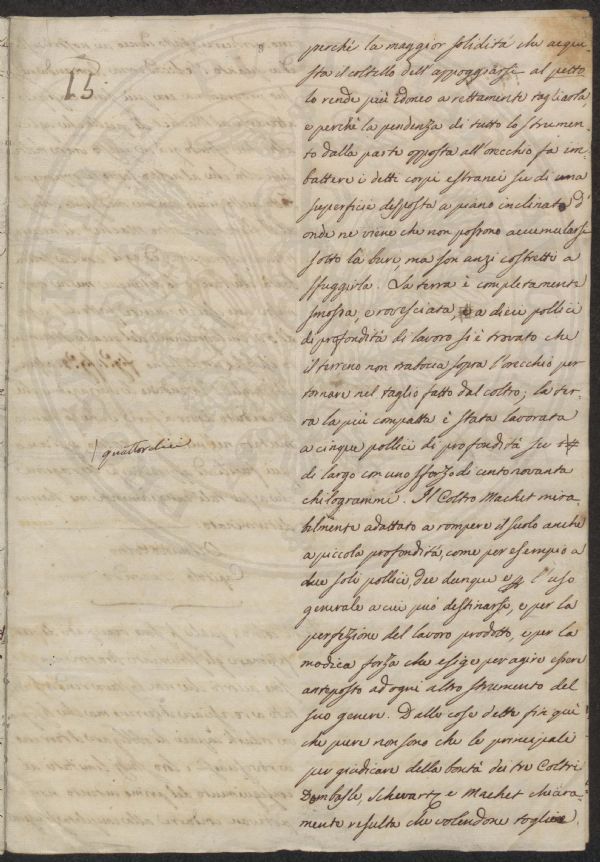 15
perché la maggior solidità che acqui-
sta il coltello dell'appoggiarsi al petto
lo rende più idoneo a rettamente tagliarla
e perché la pendenza di tutto lo strumen-
to dalla parte opposta all'orecchio fa im-
battere i detti corpi estranei su di una
superficie disposta a piano inclinato d'
onde ne viene che non possono accumularsi
sotto la bure, ma son anzi costretti a
sfuggirla. La terra è completamente
smossa, e rovesciata, e a dieci pollici
di profondità di lavoro si è trovato che
il terreno non trabocca sopra l'orecchio per
tornare nel taglio fatto dal coltro; la ter-
ra la più compatta è stata lavorata
a cinque pollici di profondità su
quattordici
di largo con uno sforzo di cento novanta
chilogrammi. Il Coltro Machet mira-
bilmente adattato a rompere il suolo anche
a piccola profondità, come per esempio a
due soli pollici, dee dunque e l'uso
generale a cui può destinarsi, e per la
perfezione del lavoro prodotto, e per la
modica forza che esige per agire essere
anteposto ad ogni altro strumento del
suo genere. Dalle cose dette fin quì
che pure non sono che le principali
per giudicare della bontà dei tre Coltri
Dombasle, Schwartz e Machet chiara-
mente resulta che volendone togliere